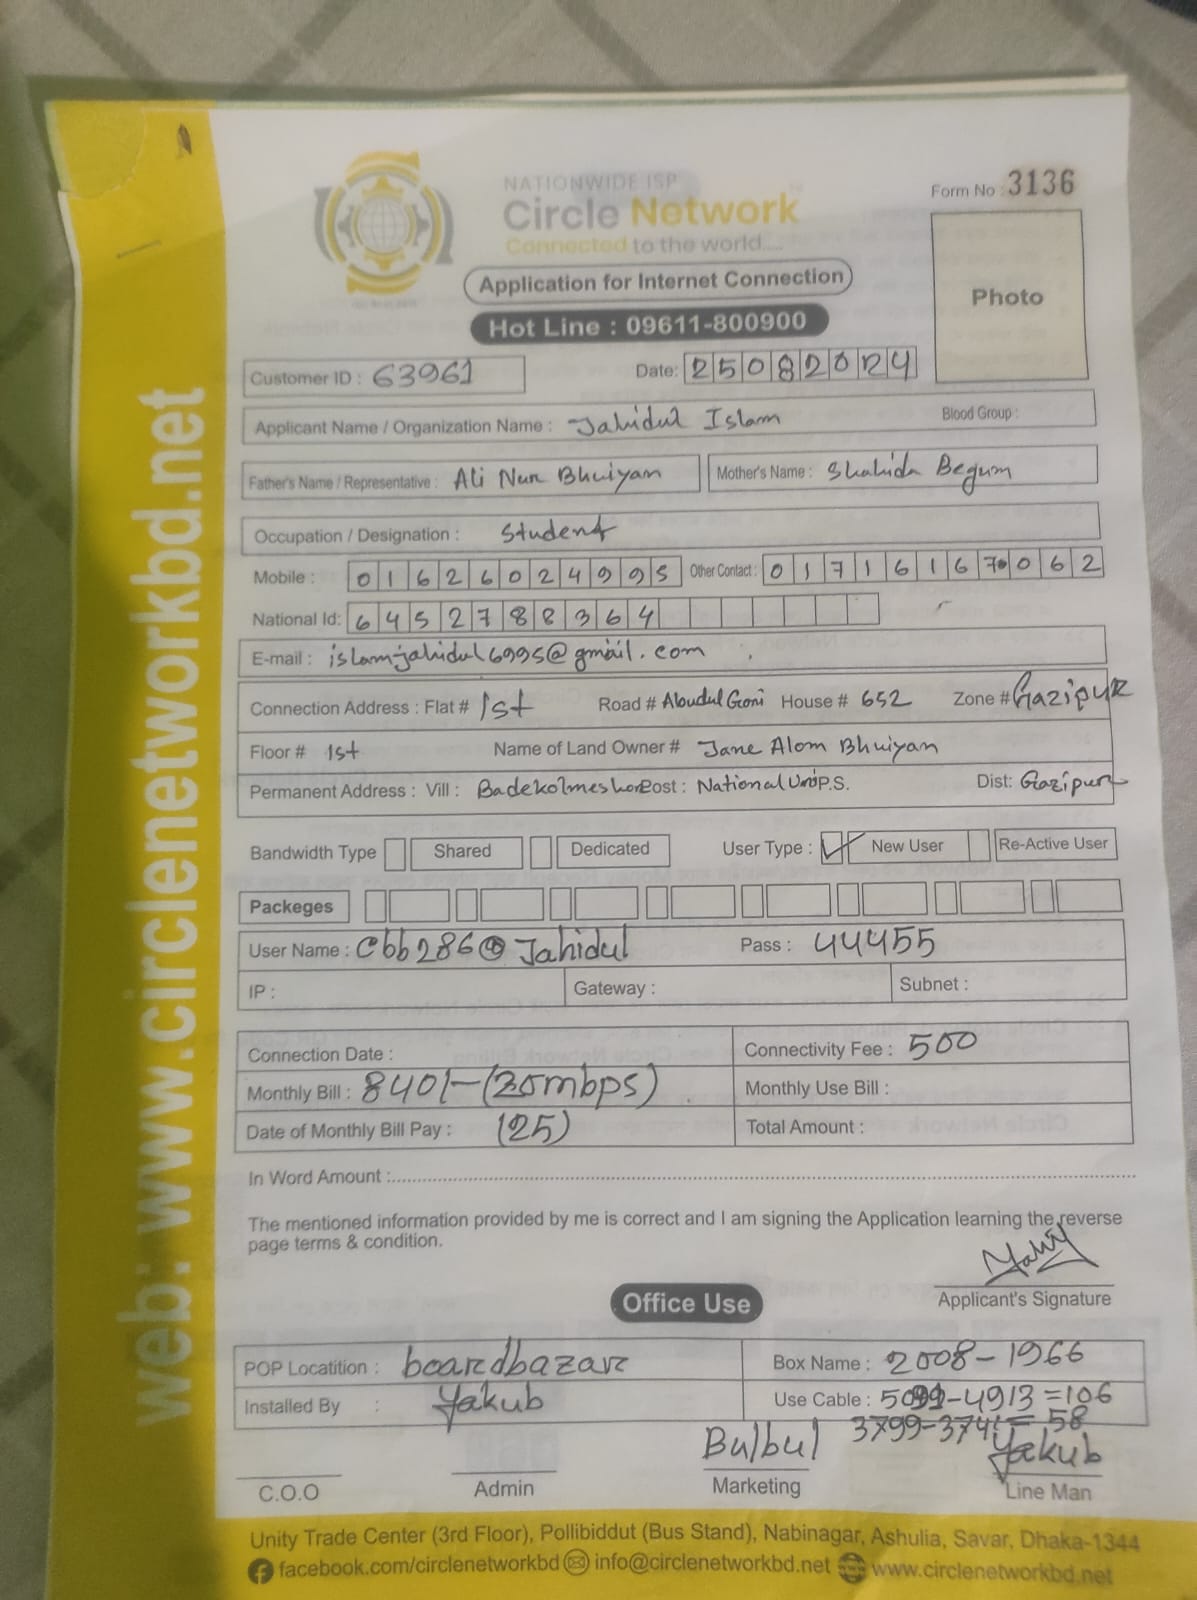 NATIONWIDE ISP
Circle Network
Connected to the world....
Form No : 3136
Photo
Application for Internet Connection
Hot Line : 09611-800900
Customer ID : 63961 Date: 25082024
Applicant Name / Organization Name : Jahidul Islam Blood Group :
Father's Name / Representative : Ali Nur Bhuiyan Mother's Name : Shahida Begum
Occupation / Designation : Student
Mobile : 01626024995 Other Contact : 01716167062
National Id: 6452788364
E-mail : islamjahidul6995@gmail.com
Connection Address : Flat # 1st Road # Aboudul Goni House # 652 Zone # Gazipur
Floor # 1st Name of Land Owner # Jane Alom Bhuiyan
Permanent Address : Vill : Badekolmeshore Post : National Uni P.S. Dist: Gazipur
Bandwidth Type Shared Dedicated User Type : New User Re-Active User
Packeges
User Name : cbb286@Jahidul Pass : 44455
IP : Gateway : Subnet :
Connection Date : Connectivity Fee : 500
Monthly Bill : 840/- (30mbps) Monthly Use Bill :
Date of Monthly Bill Pay : (25) Total Amount :
In Word Amount :
The mentioned information provided by me is correct and I am signing the Application learning the reverse
page terms & condition.
Applicant's Signature
Office Use
POP Locatition : boardbazar Box Name : 2008-1966
Installed By : Yakub Use Cable : 5-4913 =106
3799-3741= 58
Bulbul Yakub
C.O.O Admin Marketing Line Man
Unity Trade Center (3rd Floor), Pollibiddut (Bus Stand), Nabinagar, Ashulia, Savar, Dhaka-1344
facebook.com/circlenetworkbd info@circlenetworkbd.net www.circlenetworkbd.net
web: www.circlenetworkbd.net